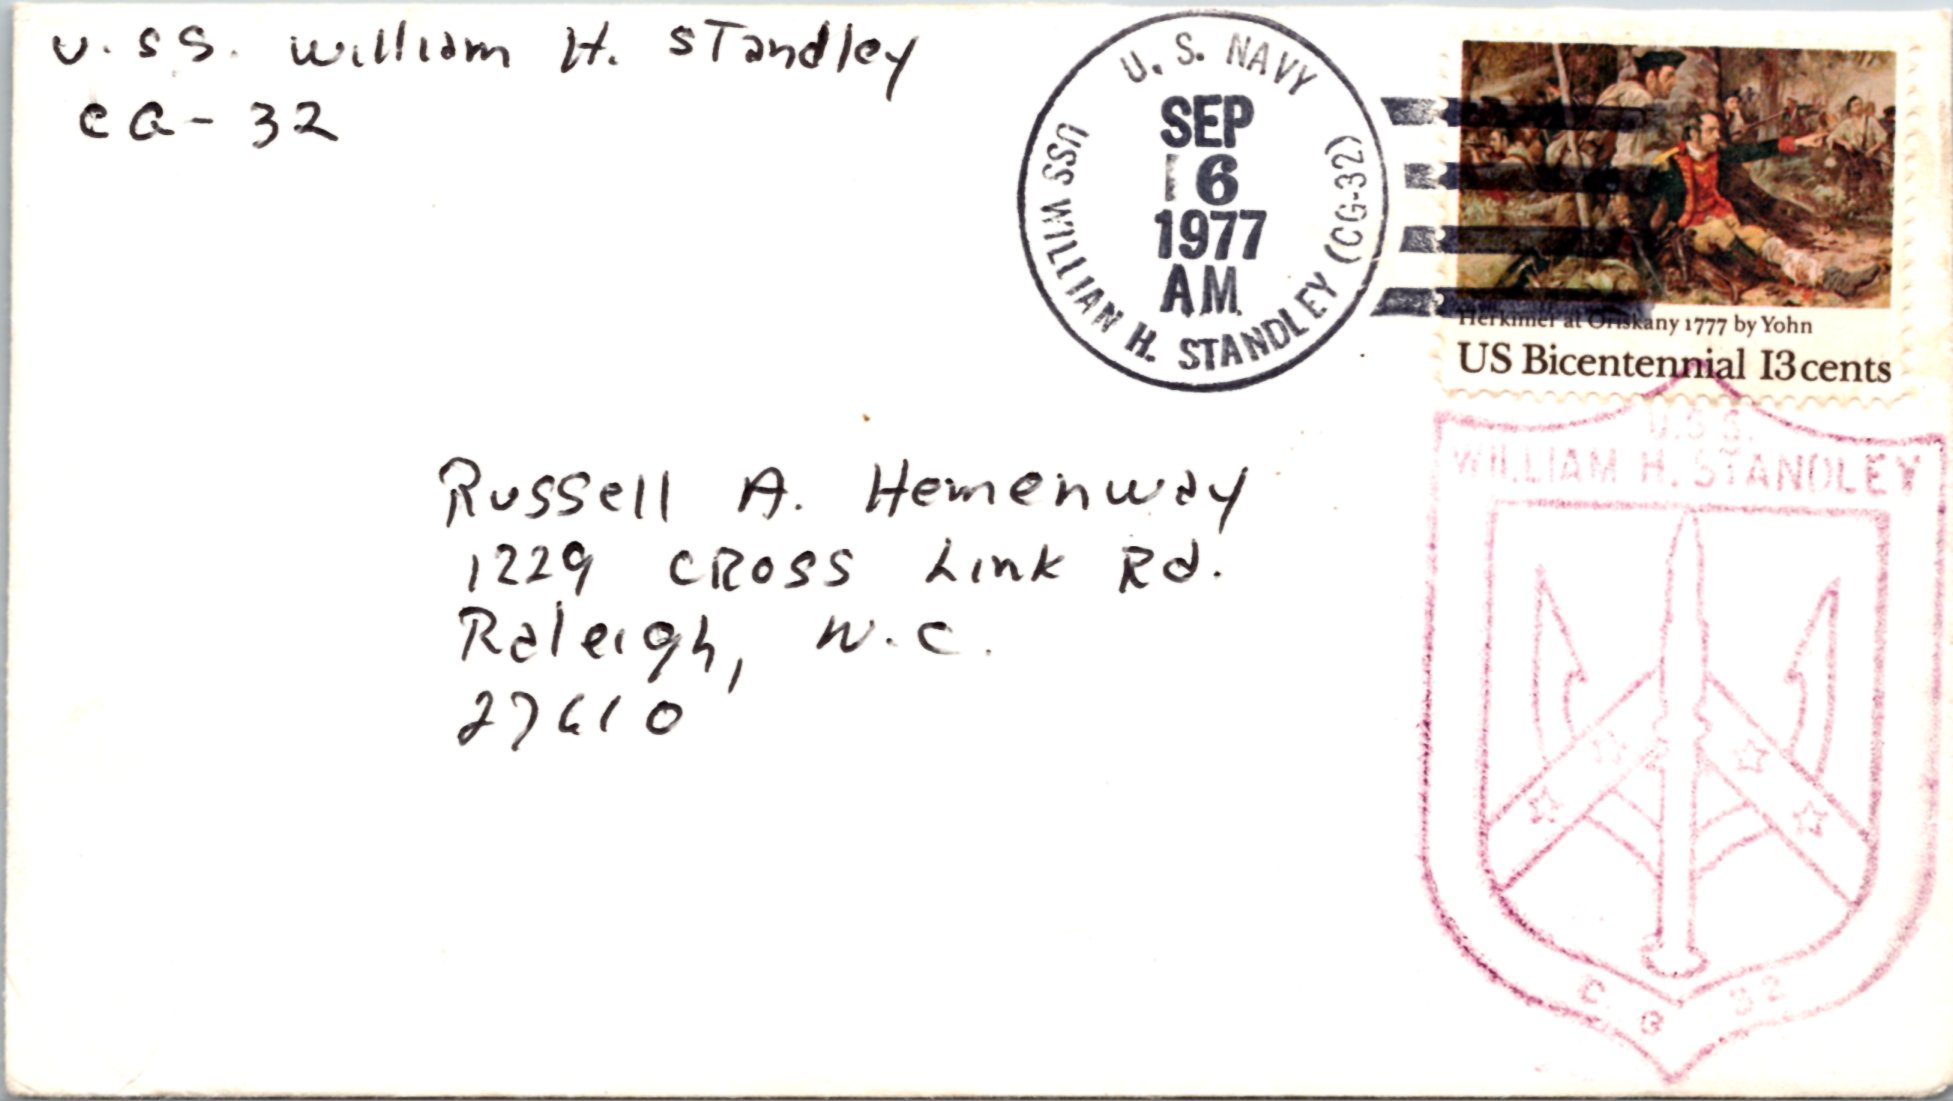 U.SS. William H. Standley
CG-32
U. S. NAVY
SEP
16
1977
AM
USS WILLIAN H. STANDLEY (CG-32)
Herkimer at Oriskany 1777 by Yohn
US Bicentennial 13 cents
U.S.S.
WILLIAM H. STANDLEY
C G 32
Russell A. Hemenway
1229 CROSS Link Rd.
Raleigh, N.C.
27610